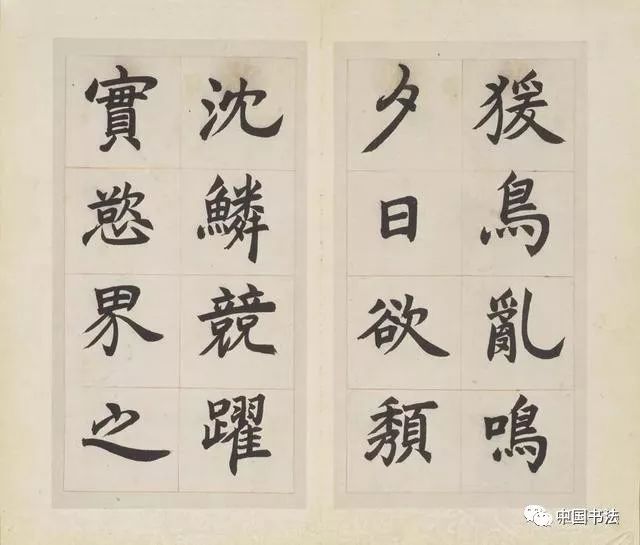 猨鳥亂鳴
夕日欲頹
沈鱗競躍
實慾界之
中国书法